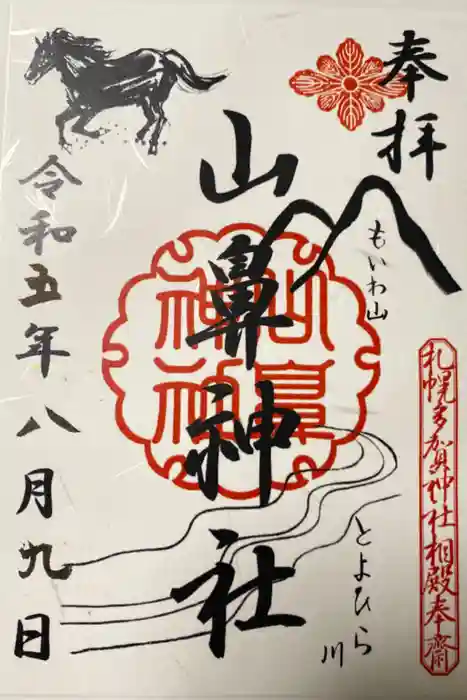 奉拝
山鼻神社
もいわ山
とよひら川
札幌多賀神社相殿奉齋
山鼻
神社
令和五年八月九日